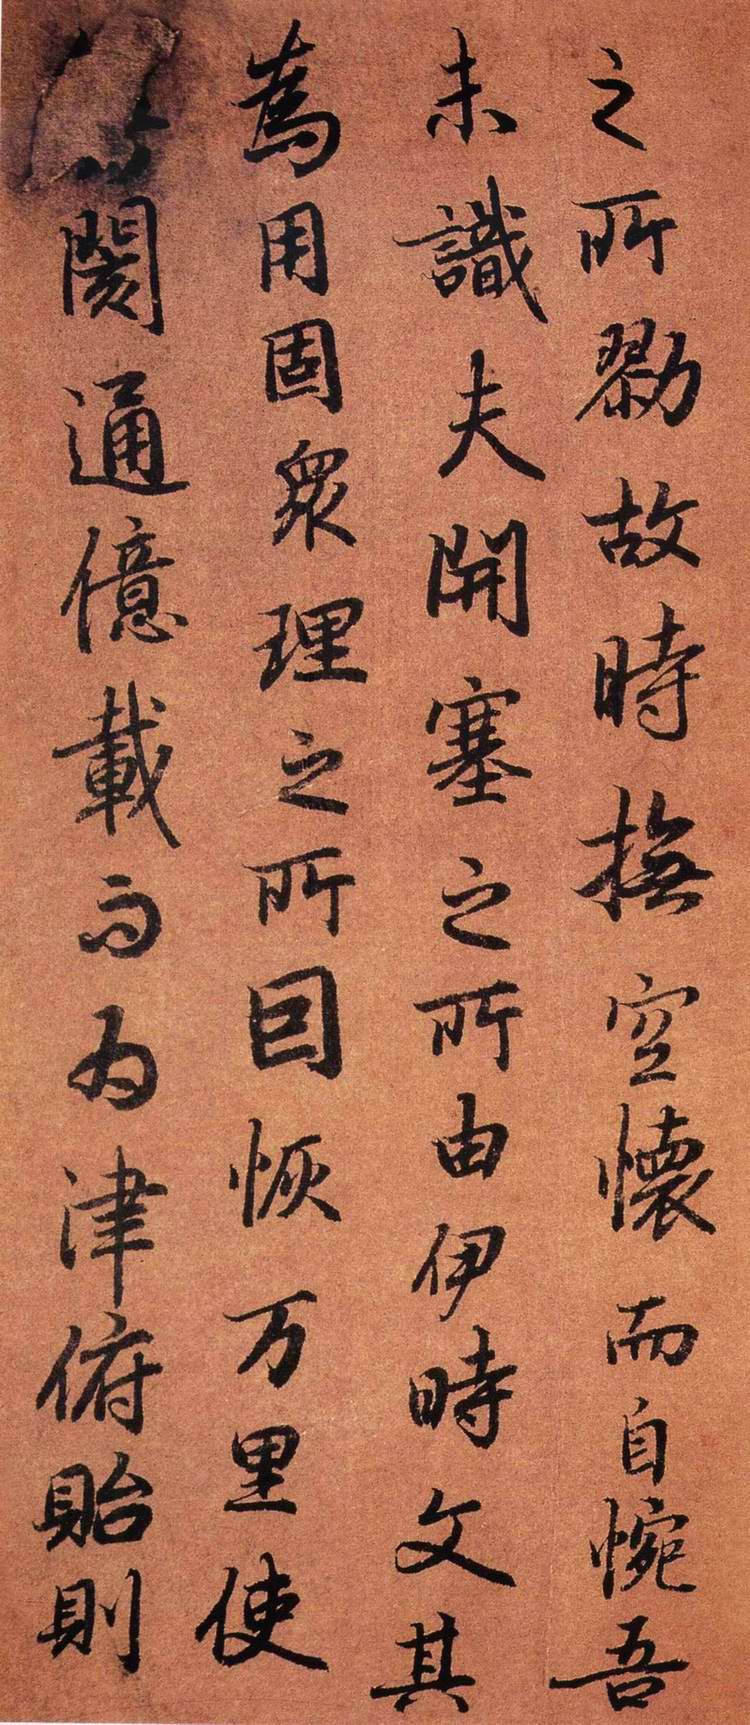 之所勠故時撫空懷而自惋吾
未識夫開塞之所由伊時文其
為用固眾理之所囙恢万里使
閡通億載而為津俯貽則